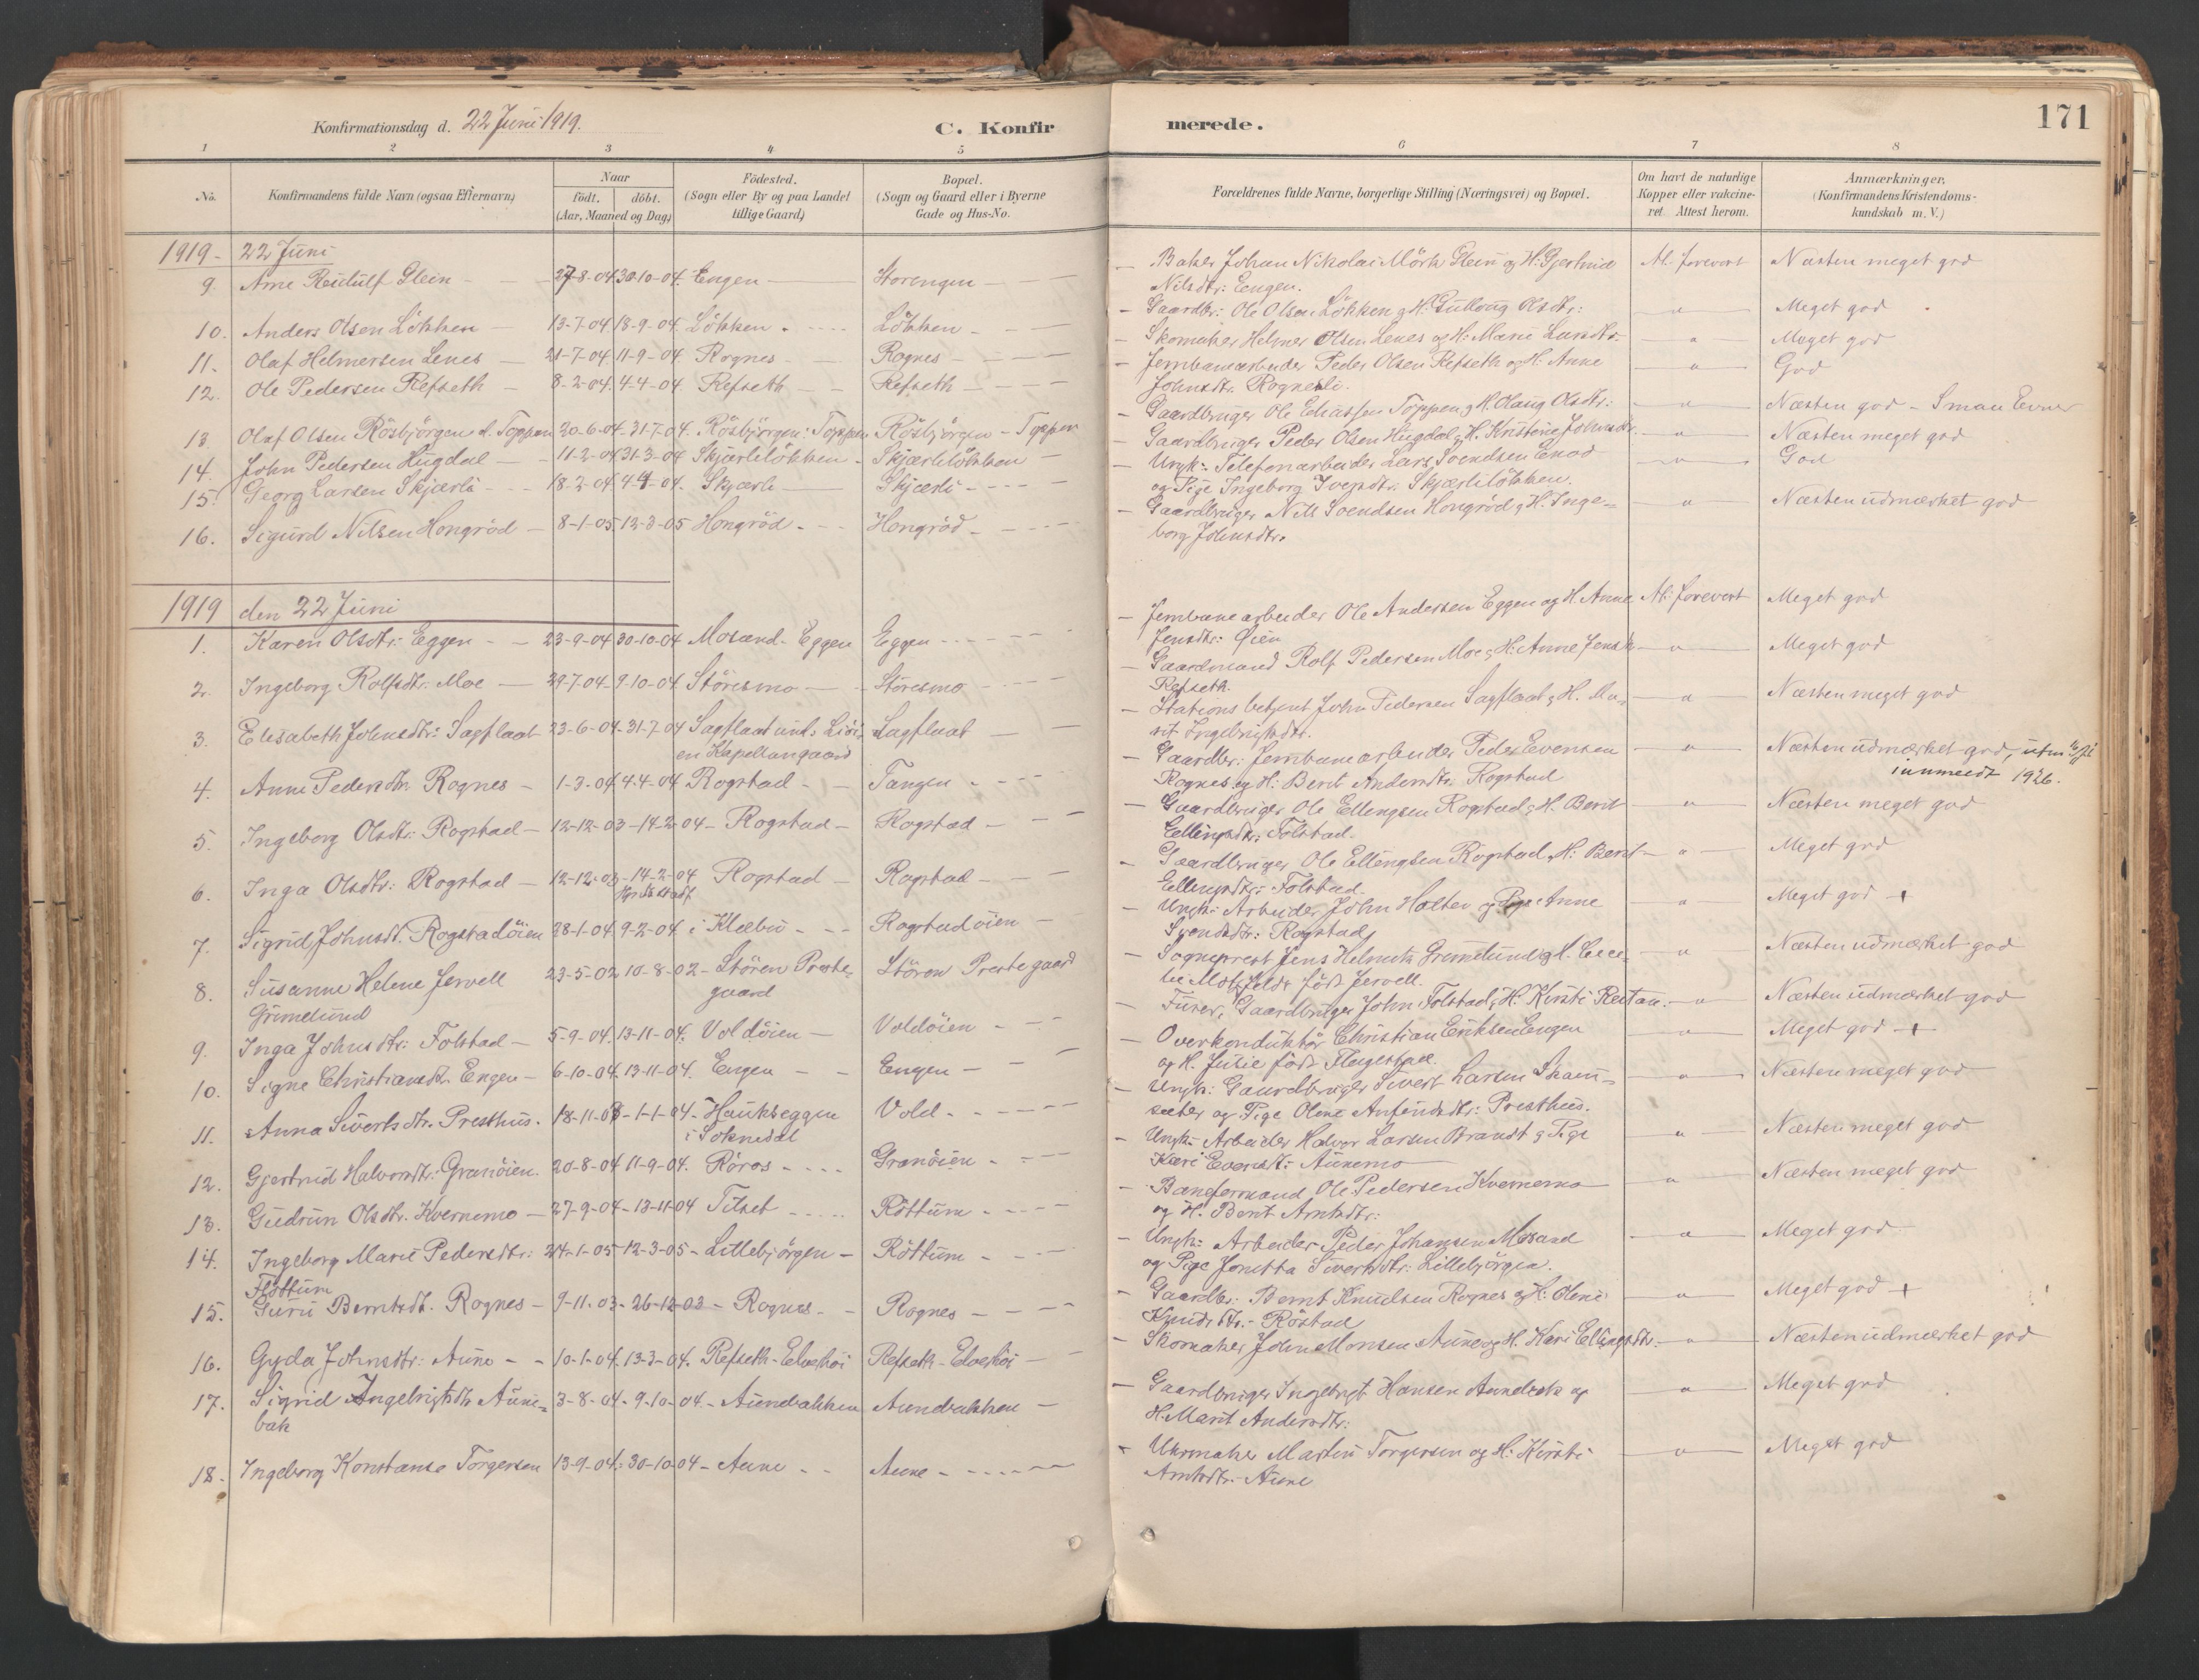 Konfirmationsdag d. 22 Juni 1919.
C. Konfir
1 2 3 4 5
No.
Konfirmandens fulde Navn (ogsaa Efternavn)
Naar
födt. döbt.
(Aar, Maaned og Dag)
Födested.
(Sogn eller By og paa Landet
tillige Gaard)
Bopæl.
(Sogn og Gaard eller i Byerne
Gade og Hus-No.
1919 - 22 Juni
9. Arne Glein - 27-8-04 30-10-04. Engen - Storengen -
10. Anders Olsen Løkken - 13-7-04 18-9-04. Løkken - Løkken -
11. Olaf Helmersen Lenes - 21-7-04 11-9-04 Rognes - Rognes -
12. Ole Pedersen Refseth - 8-2-04. 4-4-04 Refseth - Refseth -
13 Olaf Olsen Rösbjörgen d. Toppen 20-6-04-31-7-04. Rösbjörgen: Toppen Rösbjörgen - Toppen
14. John Pedersen Hugdal - 11-2-04 31-3-04 Skjærliløkken - Skjærliløkken -
15. Georg Larsen Skjærli - 18-2-04 4-4-04. Skjærli - Skjærli -
16. Sigurd Nilsen Hongröd - 8-1-05 12-3-05 Hongröd - Hongröd -
1919 den 22 Juni
1. Karen Olsdtr: Eggen - 23-9-04 30-10-04 Mosand - Eggen Eggen -
2. Ingeborg Rolfsdtr. Moe - 29-7-04-9-10-04. Störesmo - Störesmo -
3. Elisabeth Johnsdtr: Sagflaat 23-6-04-31-7-04 Sagflaat und. Sagflaat -
en Kapellangaard
4. Anne Pedersdtr Rognes - 1-3-04 4-4-04 Rogstad - Tangen -
5. Ingeborg Olsdtr: Rogstad - 12-12-03-14-2-04 - Rogstad - Rogstad -
6. Inga Olsdtr: Rogstad - 12-12-03-14-2-04 Rogstad - Rogstad -
7. Sigrid Johnsdt. Rogstadöien 28-1-04 9-2-04 i Klæbu - Rogstadöien -
8. Susanne Helene Jervell 23-5-02 10-8-02 - Stören Preste- Stören Prestegaard
Grimelund gaard
9. Inga Johnsdtr: Folstad - 5-9-04. 13-11-04. Voldöien - Voldöien -
10. Signe Christiansdt. Engen - 6-10-04. 13-11-04. Engen - Engen -
11. Anna Sivertsdtr. Presthus. 18-11-03-1-1-04 - Haukseggen Vold -
i Soknedal
12. Gjertrud Halvorsdtr: Granöien. 20-8-04 11-9-04. Röros - Granöien -
13. Gudrun Olsdtr. Kvernemo - 27-9-04-13-11-04 Tilset - Röttum -
14. Ingeborg Marie Pedersdtr: 24-1-05 12-3-05 - Lillebjörgen - Röttum -
Flöttum
15. Guru Berntsdt. Rognes - 9-11-03-26-12-03 - Rognes - Rognes -
16. Gyda Johnsdtr: Aune - 10-1-04. 13-3-04. Refseth - Elvehöi Refseth - Elvehöi -
17. Sigrid Ingebrigtsdtr Aune- 3-8-04-9-10-04 - Aunebakken Aunebakken -
bak
18. Ingeborg Konstanse Torgersen 13-9-04: 30-10-04 - Aune - Aune -
171
merede.
6 7 8
Forældrenes fulde Navne, borgerlige Stilling (Næringsvei) og Bopæl.
Om havt de naturlige
Kopper eller vakcine-
ret. Attest herom.
Anmærkninger,
(Konfirmandens Kristendoms-
kundskab m. V.)
- Baker Johan Nikolai Mörk Glein og H: Gjertrud At. forevort Næsten meget god
Nilsdtr: Engen.
- Gaardbr: Ole Olsen Løkken og H: Gulloug Olsdtr: - " - Meget god
- Skomaker Helmer Olsen Lenes og H: Marie Larsdtr - " - Meget god
- Jernbanearbeider Peder Olsen Refseth og H: Anne - " - God
Johnsdtr. Rognesli.
- Gaardbruger Ole Toppen og H. Olaug Olsdtr: - " - Næsten god - Smaa Evner
- Gaardbruger Peder Olsen Hugdal og H. Kristine Johnsdtr. - " - Næsten meget god
- Ungk: Telefonarbeider Lars Svendsen Enod - " - God
og Pige Ingeborg Iversdtr. Skjærliløkken.
- Gaardbruger Nils Svendsen Hongröd og H. Inge- - " - Næsten udmærket god
borg Johnsdtr.
- Jernbanearbeider Ole Andersen Eggen og H. Anne At. forevort Meget god
Jensdtr: Øien
- Gaardmand Rolf Pedersen Moe og H: Anne Jensdtr - " - Meget god
Refseth.
- Stations betjent John Pedersen Sagflaat og H. Ma- - " - Næsten meget god
rit Ingebrigtsdtr.
- Gaardbr: Jernbanearbeider Peder Evensen - " - Næsten udmærket god,
innmeldt 1926.
Rognes og H: Berit Andersdtr. Rogstad
- Gaardbruger Ole Ellingsen Rogstad og H. Berit - " - Næsten meget god
Ellingsdtr: Folstad.
- Gaardbruger Ole Ellingsen Rogstad og H: Berit - " - Meget god
Ellingsdtr: Folstad.
- Ungk: Arbeider John Halten og Pige Anne - " - Meget god +
Svendsdtr: Rogstad
- Sogneprest Jens Helmuth Grimelund og H. Cece- - " - Næsten udmærket god
lie Motzfeldt född Jervell.
- Furer, Gaardbruger John Folstad og H: Kirsti Reitan: - " - Næsten udmærket god
- Overkonduktör Christian Eriksen Engen - " - Meget god +
og H. Julie född Flagestad.
- Ungk: Gaardbruger Sivert Larsen Skam- - " - Næsten meget god
seter og Pige Olene Anfindsdtr: Presthus.
- Ungk: Arbeider Halvor Larsen Brandt og Pige - " - Næsten meget god
Kari Evensdt: Aunemo
- Baneformand Ole Pedersen Kvernemo - " - Næsten meget god
og H. Berit Arntsdtr:
- Ungk: Arbeider Peder Johansen Mosand - " - Meget god
og Pige Jonetta Sivertsdtr: Lillebjörgen.
- Gaardbr: Bernt Knudsen Rognes og H: Olene - " - Meget god +
Knudsdtr. - Röstad
- Skomaker John Monsen Aune og H. Kari Ellingsdtr. - " - Næsten udmærket god
- Gaardbruger Ingebrigt Hansen Aunebak og - " - Meget god
H. Marit Andersdtr:
- Urmaker Martin Torgersen og H: Kirsti - " - Meget god
Arntsdtr. - Aune